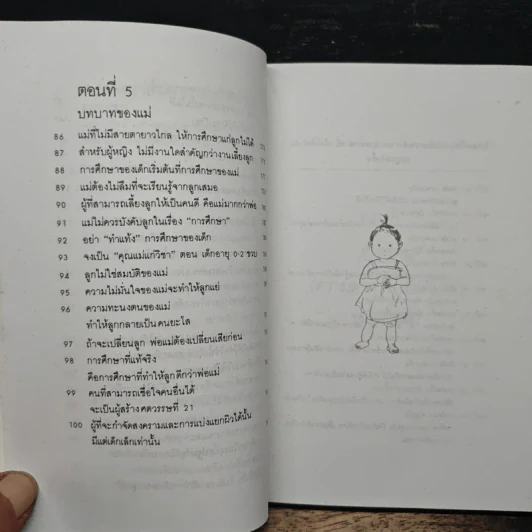 ตอนที่ 5
บทบาทของแม่
86 แม่ที่ไม่มีสายตายาวไกล ให้การศึกษาแก่ลูกไม่ได้
87 สำหรับผู้หญิง ไม่มีงานใดสำคัญกว่างานเลี้ยงลูก
88 การศึกษาของเด็กเริ่มต้นที่การศึกษาของแม่
89 แม่ต้องไม่ลืมที่จะเรียนรู้จากลูกเสมอ
90 ผู้ที่สามารถเลี้ยงลูกให้เป็นคนดี คือแม่มากกว่าพ่อ
91 แม่ไม่ควรบังคับลูกในเรื่อง "การศึกษา"
92 อย่า "ทำแท้ง" การศึกษาของเด็ก
93 จงเป็น "คุณแม่แก้วิชา" ตอน เด็กอายุ 0-2 ขวบ
94 ลูกไม่ใช่สมบัติของแม่
95 ความไม่มั่นใจของแม่จะทำให้ลูกแย่
96 ความทะนงตนของแม่
ทำให้ลูกกลายเป็นคนยะโส
97 ถ้าจะเปลี่ยนลูก พ่อแม่ต้องเปลี่ยนเสียก่อน
98 การศึกษาที่แท้จริง
คือการศึกษาที่ทำให้ลูกดีกว่าพ่อแม่
99 คนที่สามารถเชื่อใจคนอื่นได้
จะเป็นผู้สร้างศตวรรษที่ 21
100 ผู้ที่จะกำจัดสงครามและการแบ่งแยกผิวได้นั้น
มีแต่เด็กเล็กเท่านั้น